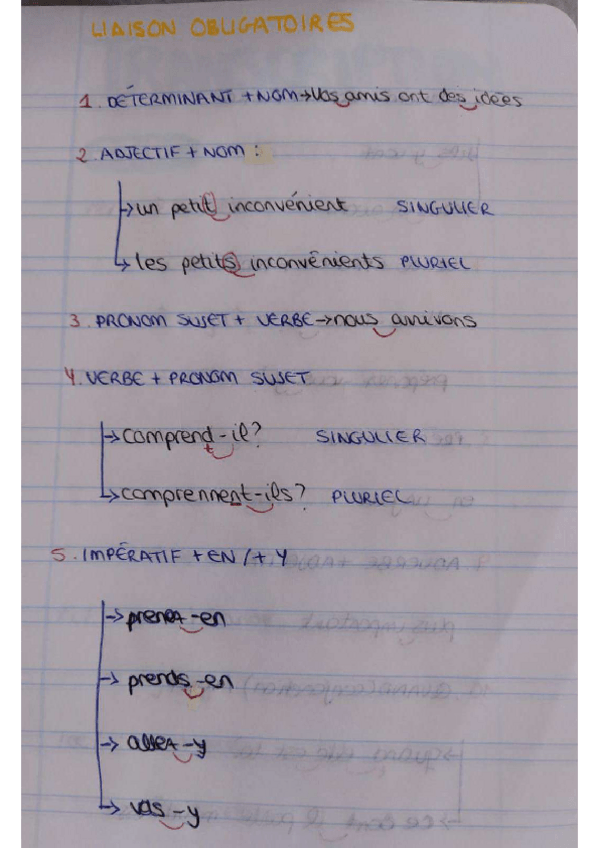 LIAISON OBLIGATOIRES
1. DÉTERMINANT + NOM → Vos amis ont des idées
2. ADJECTIF + NOM :
→ un petit inconvénient SINGULIER
→ les petits inconvénients PLURIEL
3. PRONOM SUJET + VERBE → nous arrivons
4. VERBE + PRONOM SUJET
→ comprend-il? SINGULIER
t
→ comprennent-ils? PLURIEL
5. IMPÉRATIF + EN / + Y
→ prenez-en
→ prends-en
→ allez-y
→ vas-y